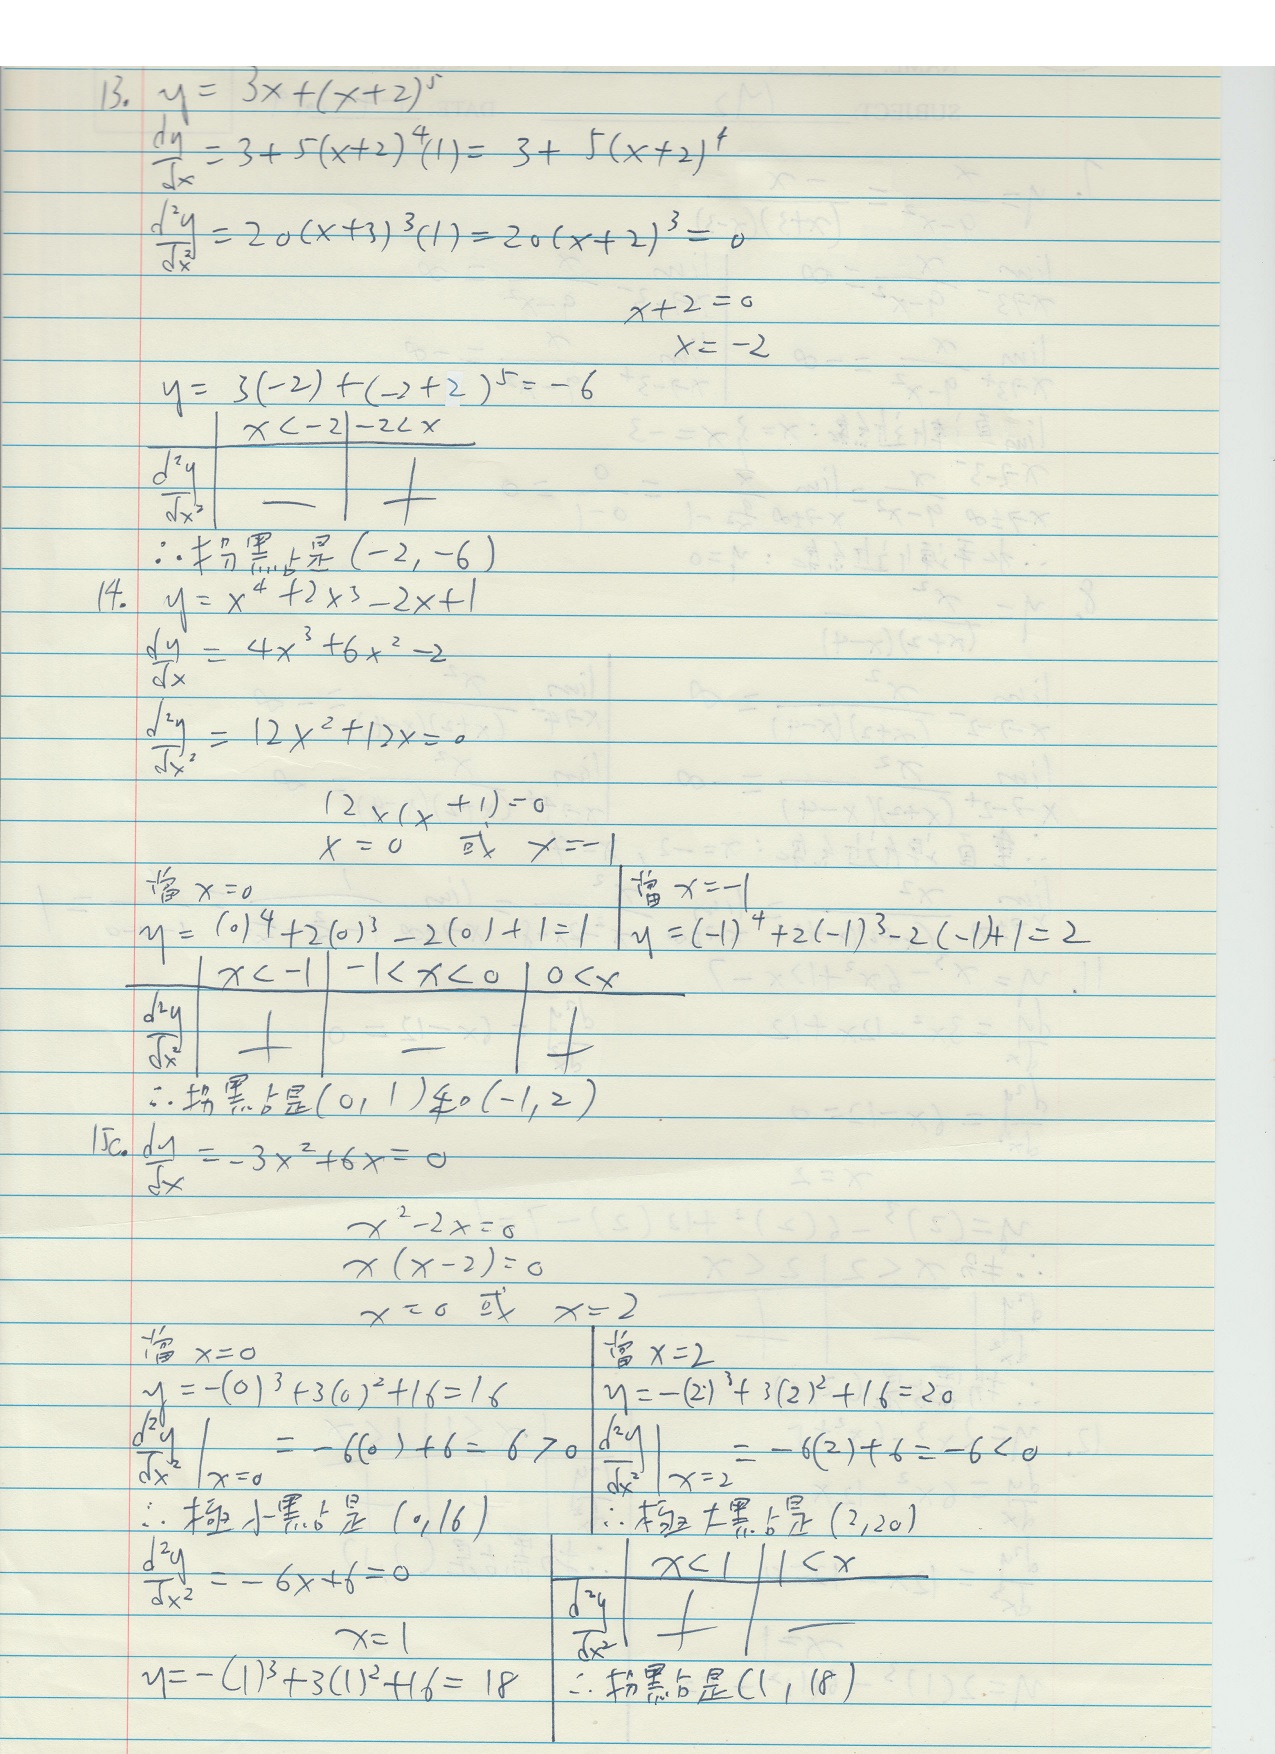 13. y = 3x+(x+2)^5
dy/dx = 3+5(x+2)^4(1) = 3+ 5(x+2)^4
d²y/dx² = 20(x+3)^3(1) = 20(x+2)^3 = 0
x+2=0
x=-2
y= 3(-2)+(-2+2)^5=-6
x<-2 | -2<x
d²y/dx² | - | +
∴拐點是(-2,-6)
14. y=x^4+2x^3-2x+1
dy/dx = 4x^3+6x^2-2
d²y/dx² = 12x^2+12x=0
12x(x+1)=0
x=0 或 x=-1
當x=0 | 當x=-1
y=(0)^4+2(0)^3-2(0)+1=1 | y=(-1)^4+2(-1)^3-2(-1)+1=2
x<-1 | -1<x<0 | 0<x
d²y/dx² | + | - | +
∴拐點是(0,1)和(-1,2)
15c. dy/dx = -3x^2+6x=0
x^2-2x=0
x(x-2)=0
x=0 或 x=2
當x=0 | 當x=2
y=-(0)^3+3(0)^2+16=16 | y=-(2)^3+3(2)^2+16=20
d²y/dx² |x=0 = -6(0)+6=6>0 | d²y/dx² |x=2 = -6(2)+6=-6<0
∴極小點是(0,16) | ∴極大點是(2,20)
d²y/dx² = -6x+6=0
x=1
y=-(1)^3+3(1)^2+16=18
x<1 | 1<x
d²y/dx² | + | -
∴拐點是(1,18)